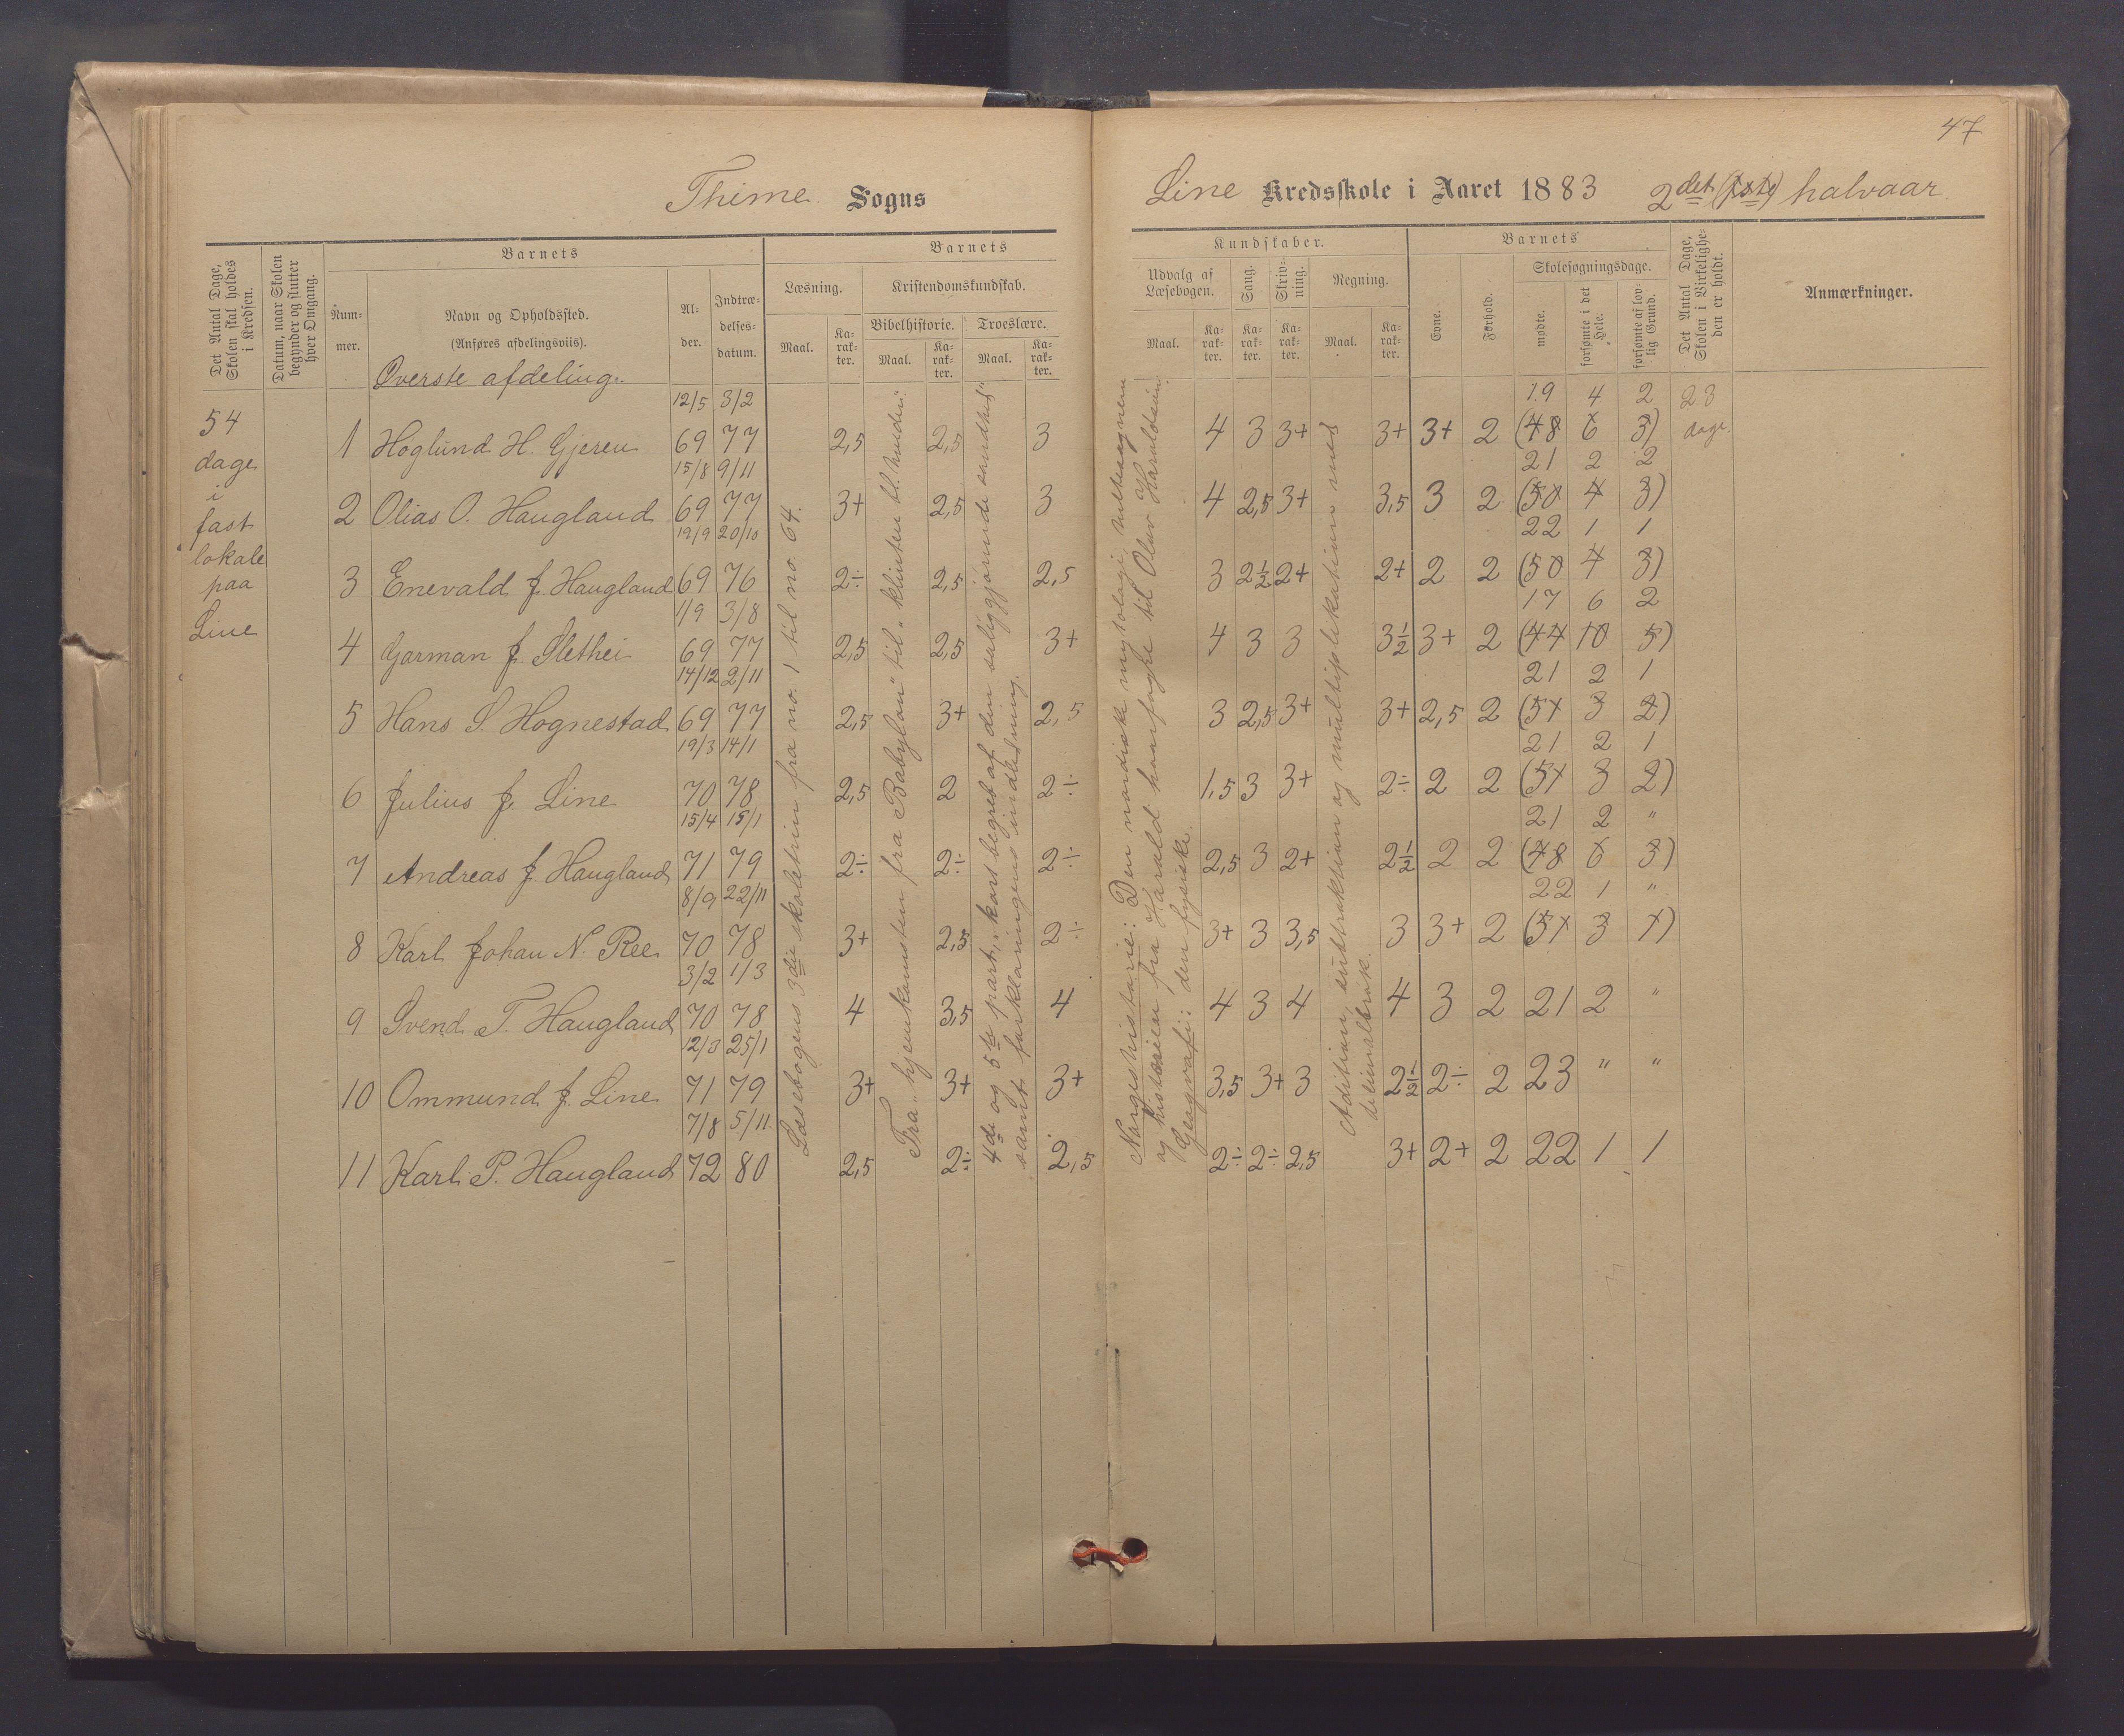 47
Thime Sogns
Line Kredsskole i Aaret 1883 2det (1ste) halvaar
Det Antal Dage, Skolen skal holdes i Kredsen.
Datum, naar Skolen begynder og slutter hver Omgang.
Barnets
Num-
mer.
Navn og Opholdssted.
(Anføres afdelingsviis).
Al-
der.
Indtræ-
delses-
datum.
Barnets
Læsning.
Maal.
Ka-
rak-
ter.
Kristendomskundskab.
Bibelhistorie.
Maal.
Ka-
rak-
ter.
Troeslære.
Maal.
Ka-
rak-
ter.
Kundskaber.
Udvalg af
Læsebogen.
Maal.
Ka-
rak-
ter.
Sang.
Ka-
rak-
ter.
Skriv-
ning.
Ka-
rak-
ter.
Regning.
Maal.
Ka-
rak-
ter.
Barnets
Evne.
Forhold.
Skolesøgningsdage.
mødte.
forsømte i det Hele.
forsømte af lov-
lig Grund.
Det Antal Dage, Skolen i Virkelighe-
den er holdt.
Anmærkninger.
Øverste afdeling.
54
dage
i
fast
lokale
paa
Line
12/5 3/2 19 4 2 23
1 Hoglund H. Gjeren 69 77 2,5 2,5 3 4 3 3+ 3+ 3+ 2 (48 6 3) dage.
15/8 9/11 21 2 2
2 Olias O. Haugland 69 77 3+ 2,5 3 4 2,5 3+ 3,5 3 2 (50 4 3)
19/9 20/10 22 1 1
3 Enevald J. Haugland 69 76 2÷ 2,5 2,5 3 2½ 2+ 2+ 2 2 (50 4 3)
1/9 3/8 17 6 2
4 Garman J. Slethei 69 77 2,5 2,5 3+ 4 3 3 3½ 3+ 2 (44 10 5)
14/12 2/11 21 2 1
5 Hans S. Hognestad 69 77 2,5 3+ 2,5 3 2,5 3+ 3+ 2,5 2 (51 3 2)
19/3 14/1 21 2 1
6 Julius J. Line 70 78 2,5 2 2÷ 1,5 3 3+ 2÷ 2 2 (51 3 2)
15/4 15/1 21 2 "
7 Andreas J. Haugland 71 79 2÷ 2÷ 2÷ 2,5 3 2+ 2½ 2 2 (48 6 3)
8/9 22/11 22 1 "
8 Karl Johan N. Ree 70 78 3+ 2,5 2÷ 3+ 3 3,5 3 3+ 2 (51 3 1)
3/2 1/3
9 Svend T. Haugland 70 78 4 3,5 4 4 3 4 4 3 2 21 2 "
12/3 25/1
10 Ommund J. Line 71 79 3+ 3+ 3+ 3,5 3+ 3 2½ 2÷ 2 23 " "
7/8 5/11
11 Karl P. Haugland 72 80 2,5 2÷ 2,5 2÷ 2÷ 2,5 3+ 2+ 2 22 1 1
Læsebogens 3die skoletrin fra no. 1 til no. 64.
Fra "hjemkomsten fra Babylon" til "klinten bl. hveden".
4de og 5te part, "kort begreb af den saliggjørende sandhed"
samt forklaringens indledning.
Norgeshistorie: Den nordiske mytologi, heltesagnene
og historien fra Harald haarfagre til Olav Haraldsøn.
Geografi: den fysiske.
Addition, subtraktion og multiplikation med
decimalbrøk.